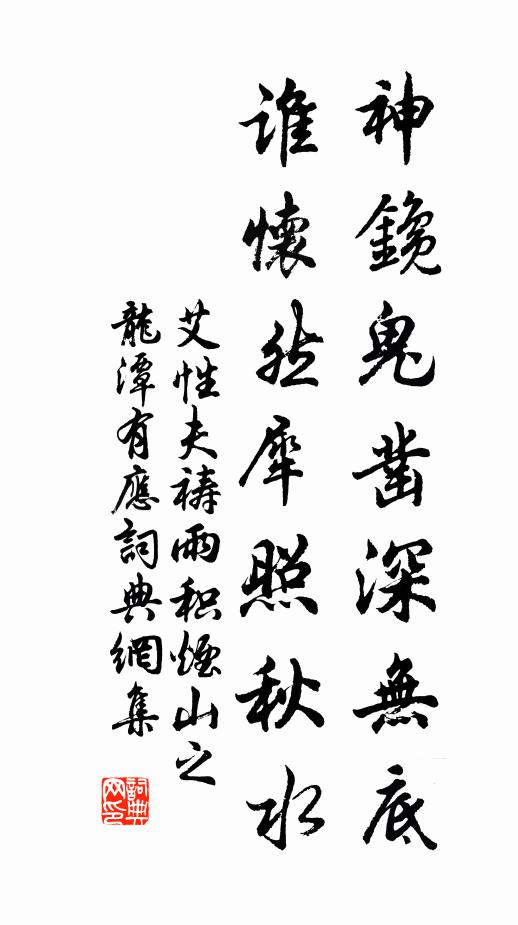 神鑱鬼凿深無底
誰懷然犀照秋水
艾性夫禱雨积煙山之
龍潭有應詞典網集
詞典
网印